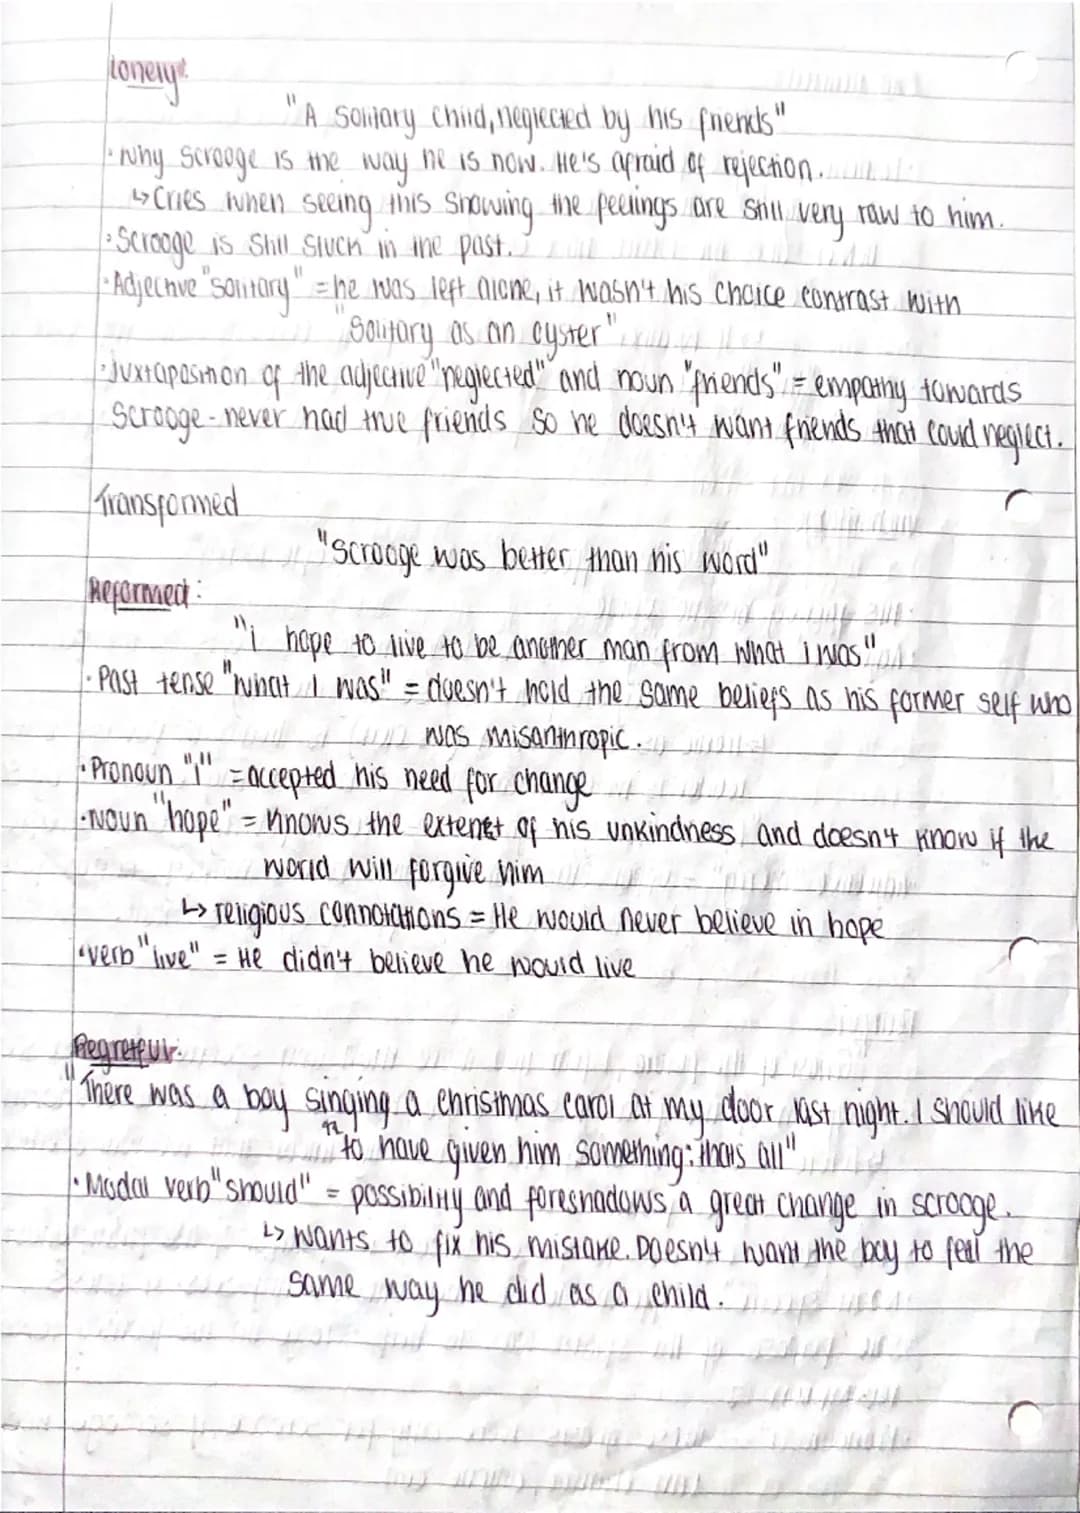 Lonely:
"A solitary child, neglected by his friends"
· Why Scrooge is the way he is now. He's afraid of rejection.
↳ Cries when seeing this showing the feelings are still very raw to him.
· Scrooge is still stuck in the past.
· Adjective "solitary" = he was left alone, it wasn't his choice contrast with
"Solitary as an oyster"
· Juxtaposition of the adjective "neglected" and noun "friends" = empathy towards
Scrooge - never had true friends so he doesn't want friends that could neglect.
Transformed
"Scrooge was better than his word"
Reformed:
"i hope to live to be another man from what i was"
· Past tense "what I was" = doesn't hold the same beliefs as his former self who
was misanthropic.
· Pronoun "I" = accepted his need for change
· Noun "hope" = knows the extent of his unkindness and doesn't know if the
world will forgive him
↳ religious connotations = He would never believe in hope
· verb "live" = He didn't believe he would live
Regretful:
"There was a boy singing a christmas carol at my door last night. I should like
to have given him something: thats all"
· Modal verb "should" = possibility and foreshadows a great change in scrooge.
↳ wants to fix his mistake. Doesn't want the boy to feel the
same way he did as a child.